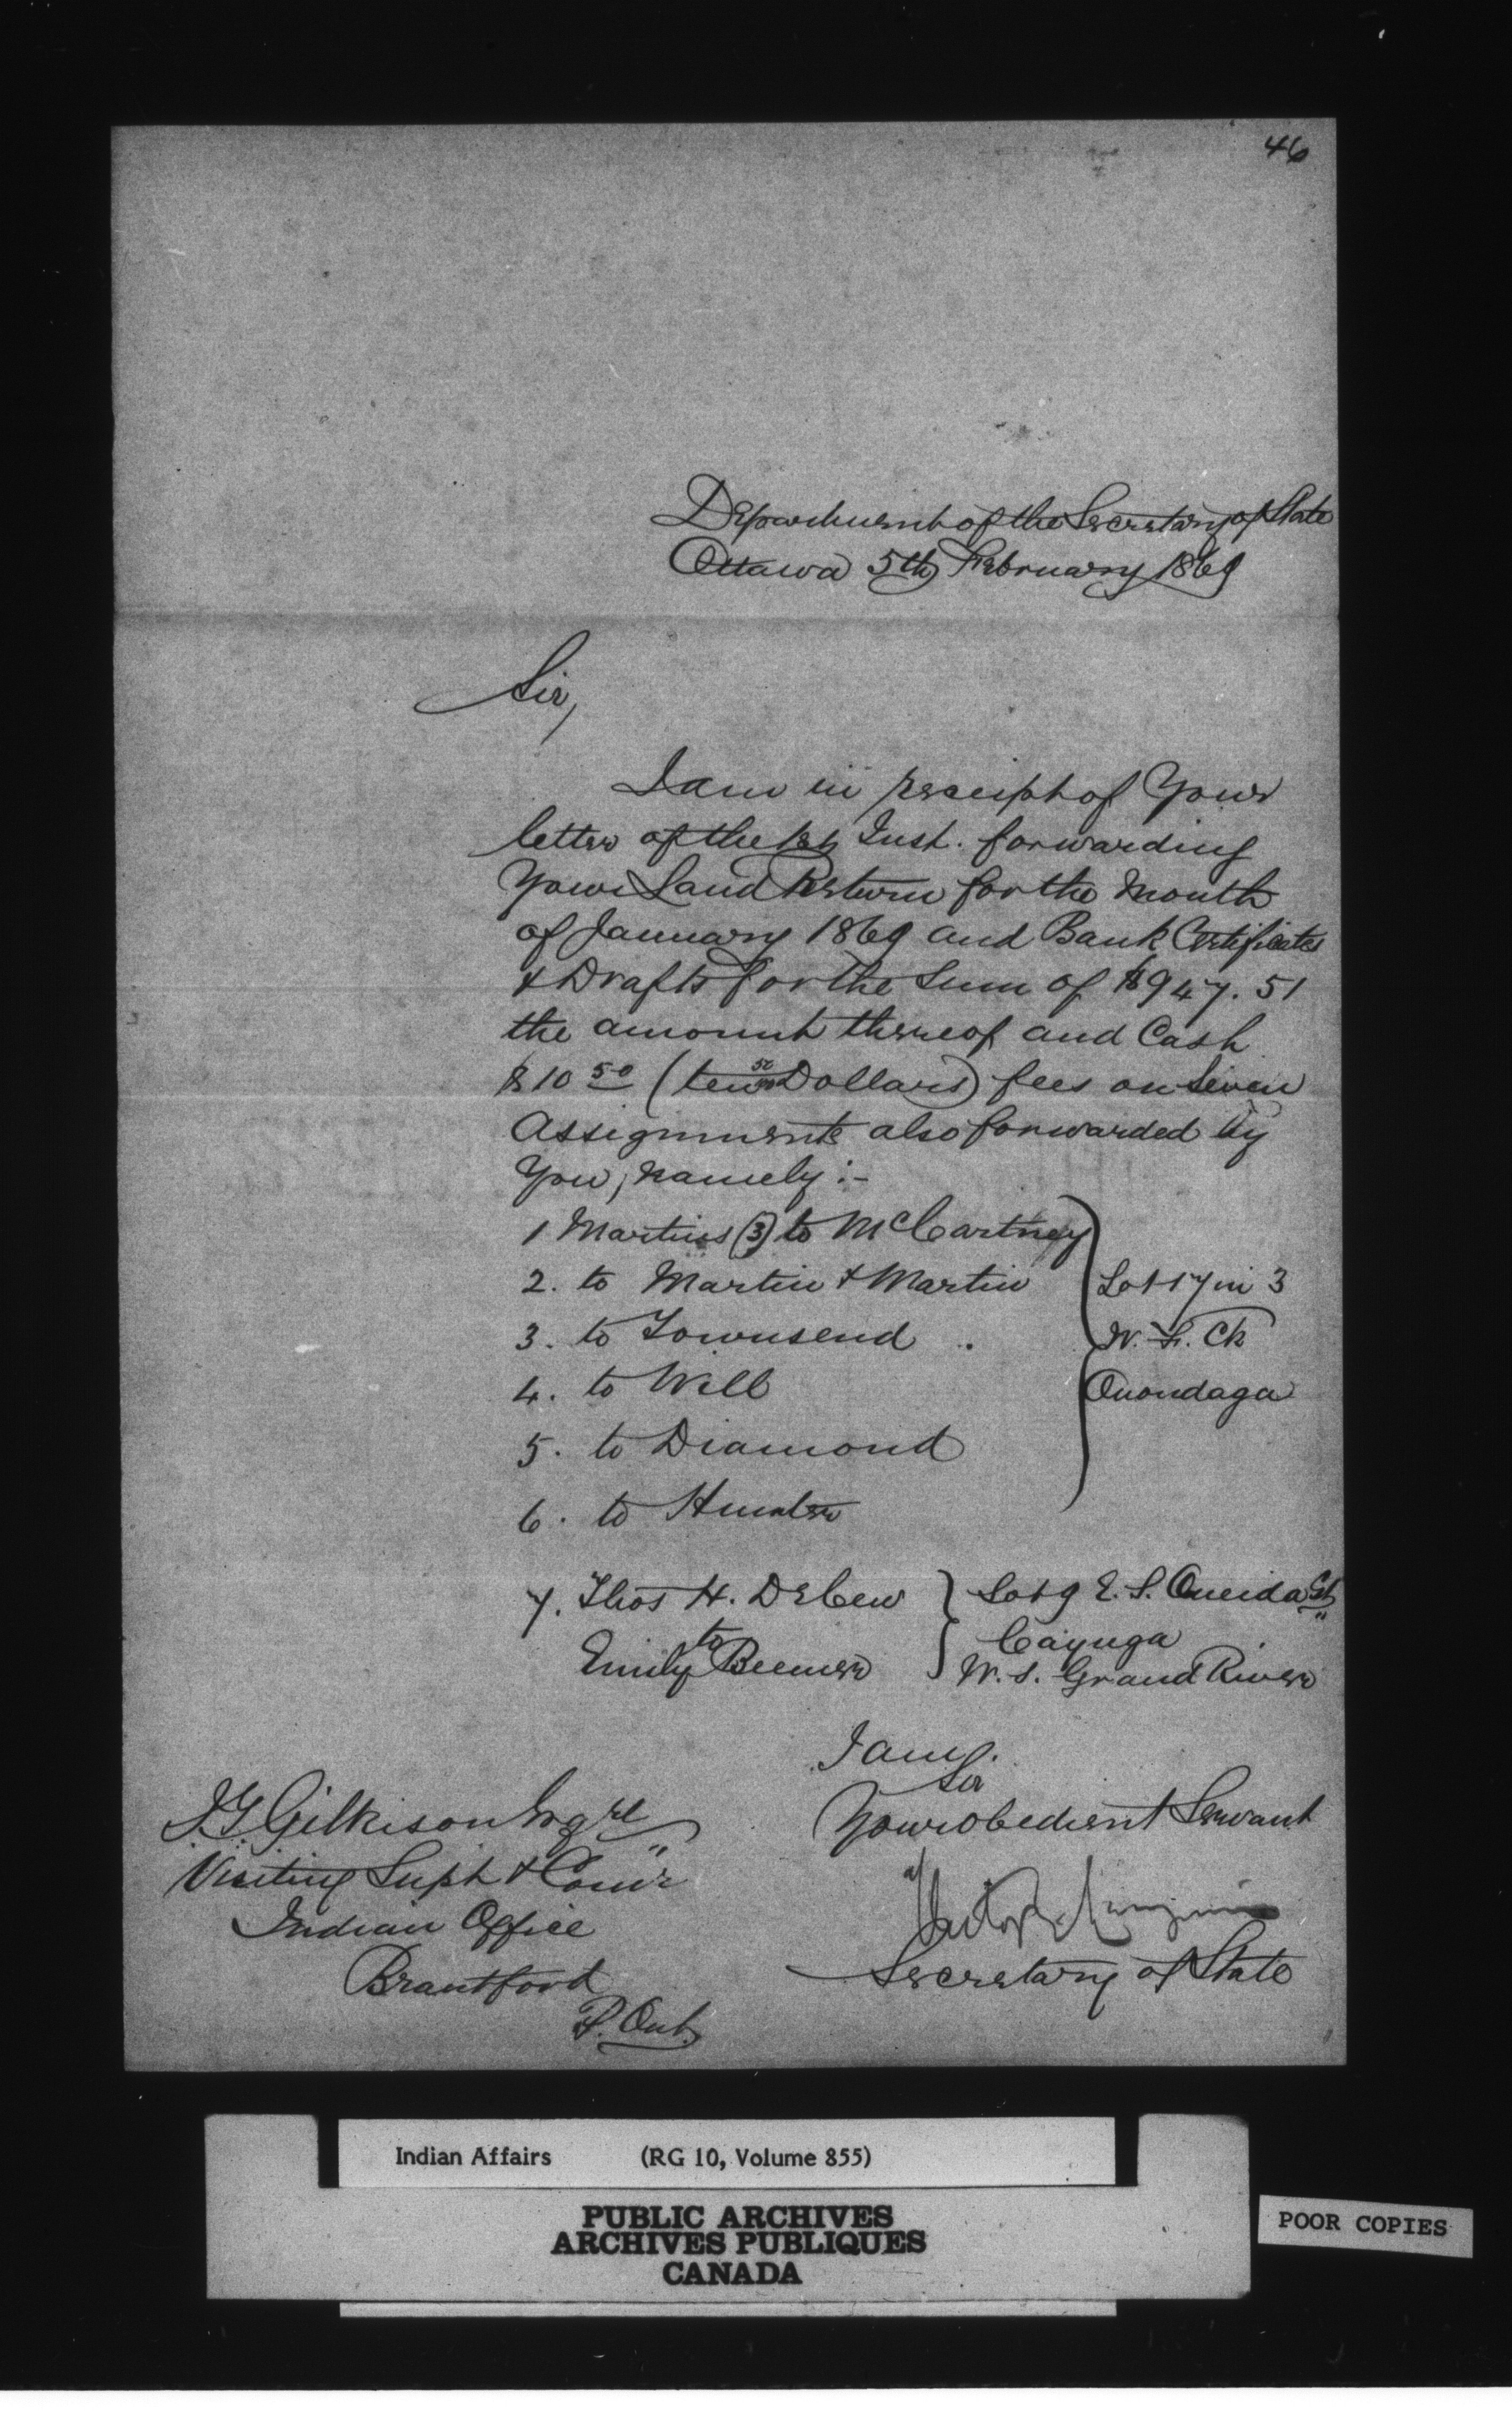 46
Department of the Secretary of State
Ottawa 5th February 1869
Sir,
I am in receipt of Your
letter of the 1st Inst. forwarding
Your Land Return for the Month
of January 1869 and Bank Certificates
& Drafts for the Sum of $947.51
the amount thereof and Cash
$10 50 (ten 50/100 Dollars) fees on Seven
Assignments also forwarded by
You, namely :-
1 Martins (3) to McCartney
2. to Martin & Martin
Lot 17 in 3
3. to Townsend
W. F. Ck
4. to Will
Onondaga
5. to Diamond
6. to Hunter
7. Thos H. DeCew
to
Emily Beemer
Lot 9 E. S. Oneida St
Cayuga
W. S. Grand River
I am,
Sir
Your obedient Servant
Secretary of State
J.T. Gilkison Esqre
Visiting Supt & Comr
Indian Office
Brantford
P. Ont.
Indian Affairs (RG 10, Volume 855)
PUBLIC ARCHIVES
ARCHIVES PUBLIQUES
CANADA
POOR COPIES